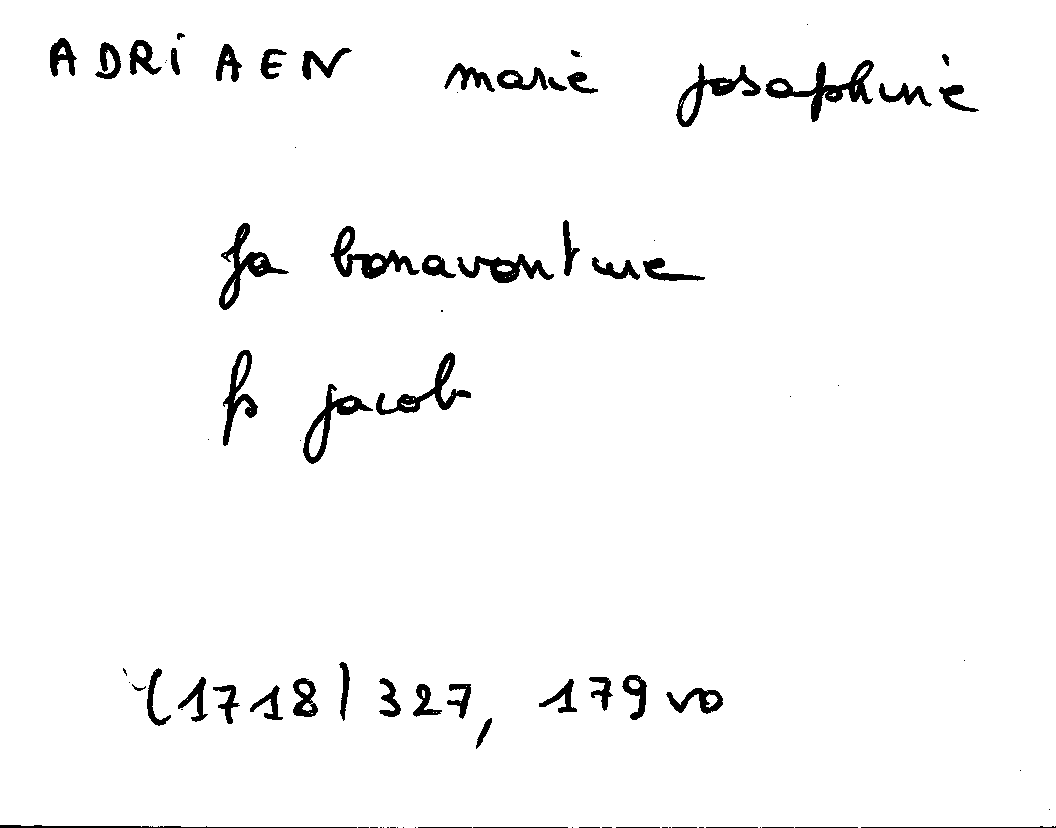 ADRIAEN marie josephine
fa bonaventure
fs jacob
(1718) 327, 179 vo